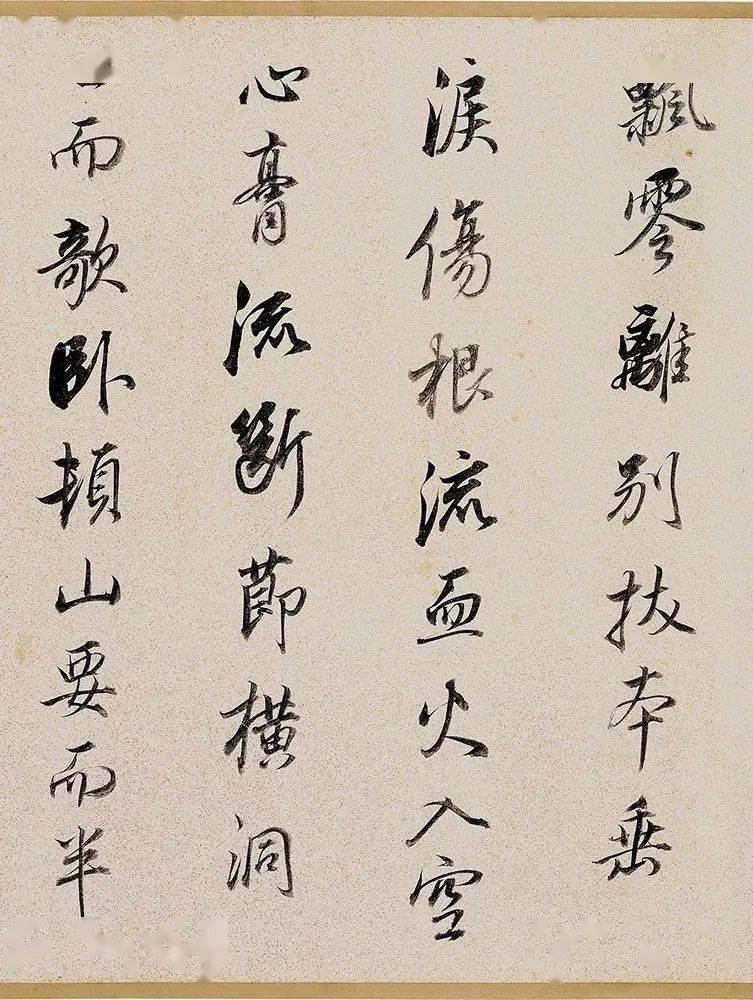 飄零離別拔本垂
淚傷根流血火入空
心膏流斷節橫洞
而欹卧頓山要而半